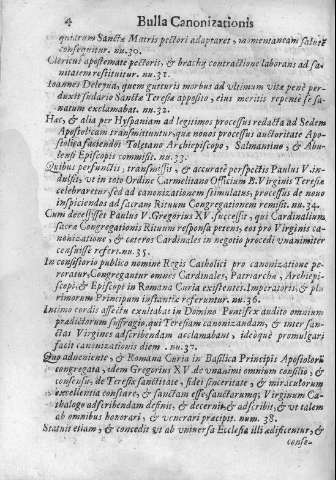 4 Bulla Canonizationis
quitarum Sanctæ Matris pectori adaptaret, momentaneam salutẽ
consequitur. nu.30.
Clericus apostemate pectoris, & brachij contractione laborans ad sa-
nitatem restituitur. nu.31.
Ioannes Delepna, quem gutturis morbus ad vltimum vitæ penè per-
duxit sudario Sanctæ Teresæ apposito, eius meritis repente se sa-
natum exclamabat. nu.32.
Hæc, & alia per Hyspaniam ad legitimos processus redacta ad Sedem
Apostolicam transmittuntur, quæ nouos processus auctoritate Apo-
stolica faciendos Toletano Archiepiscopo, Salmantino, & Abu-
lensi Episcopis commisit. nu.33.
Quibus perfunctis, transmissis, & accuratè perspectis Paulus V. in-
dulsit, vt in toto Ordine Carmelitano Officium B. Virginis Teresiæ
celebraretur, sed ad canonizationem stimulatus, processus de nouo
inspiciendos ad sacram Rituum Congregationem remisit. nu.34.
Cum decessisset Paulus V. Gregorius XV. successit, qui Cardinalium
sacræ Congregationis Rituum responsa petens, eos pro Virginis ca-
nonizatione, & ceteros Cardinales in negotio procedi vnanimiter
censuisse refert. nu.35.
In consistorio publico nomine Regis Catholici pro canonizatione pe-
roratur, Congregantur omnes Cardinales, Patriarchæ, Archiepi-
scopi, & Episcopi in Romana Curia existentes. Imperatoris, & plu-
rimorum Principum instantiæ referuntur. nu.36.
Intimo cordis affectu exultabat in Domino Pontifex audito omnium
prædictorum suffragio, qui Teresiam canonizandam, & inter san-
ctas Virgines adscribendam acclamabant, ideòque promulgari
facit canonizationis diem. nu.37.
Quo adueniente, & Romana Curia in Basilica Principis Apostolorũ
congregata, idem Gregorius XV de vnanimi omnium consilio, &
consensu, de Teresiæ sanctitate, fidei sinceritate, & miraculorum
excellentia constare, & sanctam esse, sanctarumq; Virginum Ca-
thalogo adscribendam definit, & decernit, & adscribit, & vt talem
ab omnibus honorari, & venerari præcipit. num. 38.
Statuit etiam, & concedit vt ab vniuersa Ecclesia illi ædificentur, &
conse-